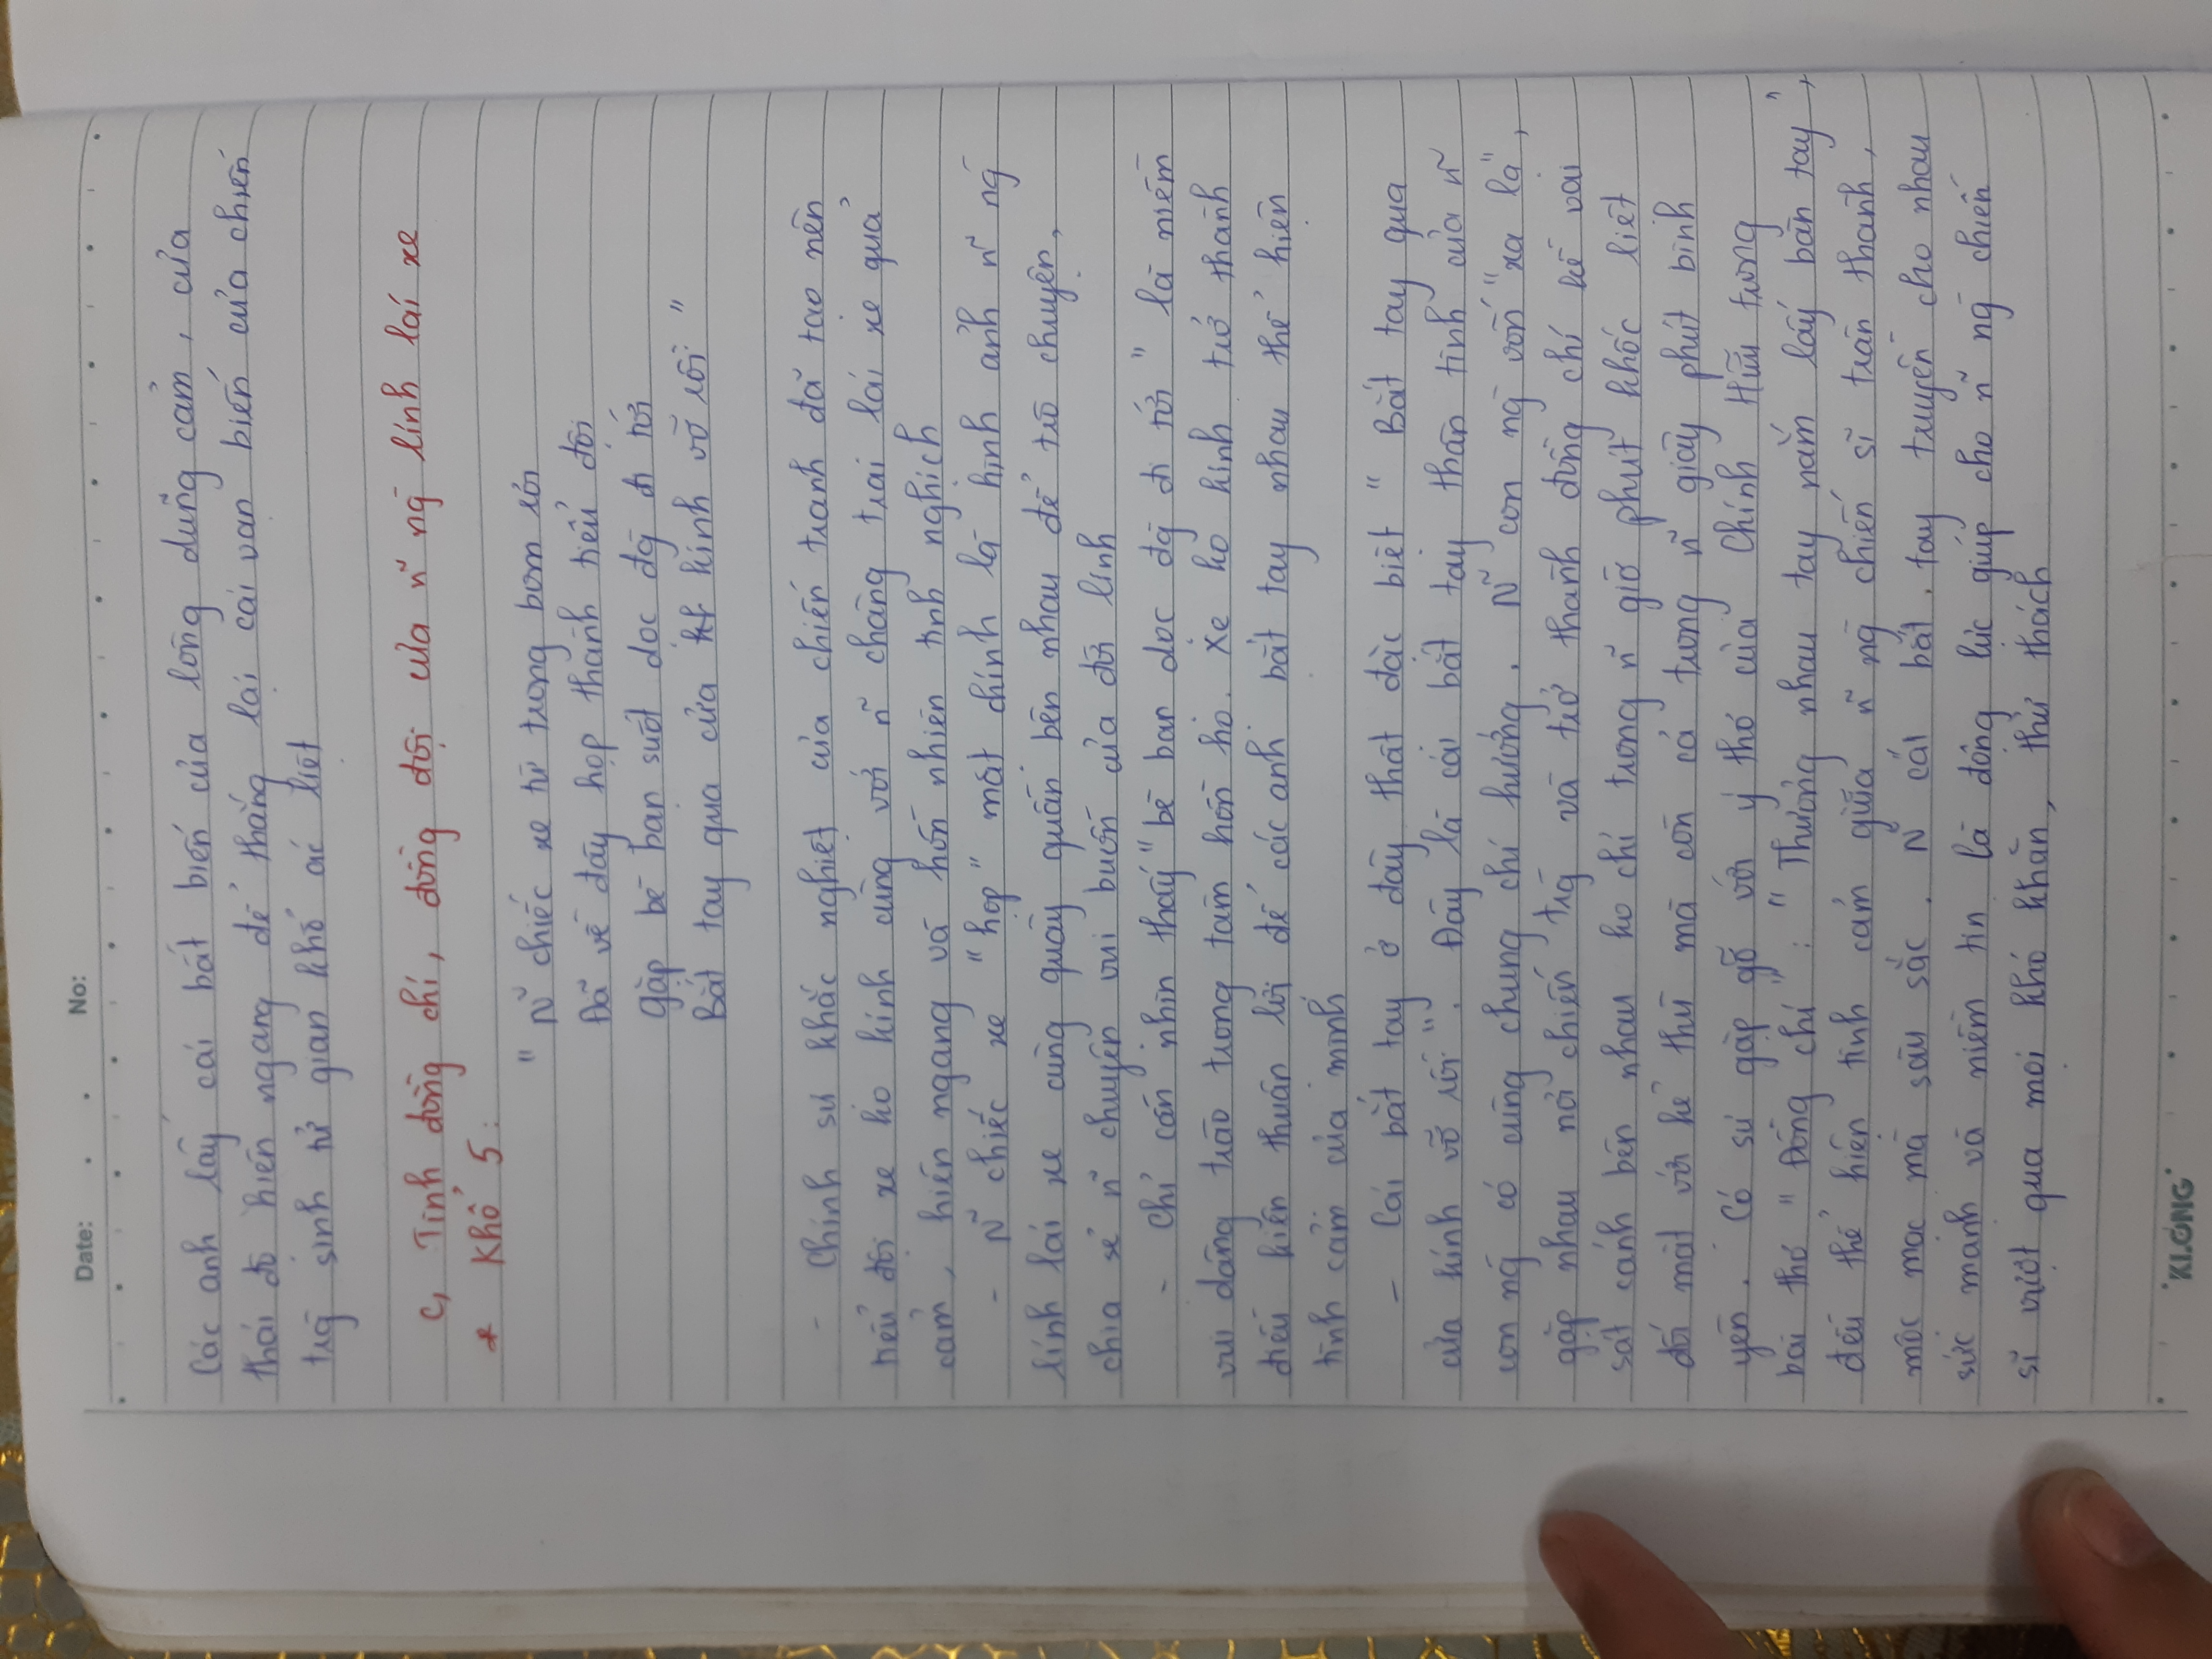 Date: . . No:
Các anh lấy cái bất biến của lòng dũng cảm, của
thái độ hiên ngang để thắng lại cái vạn biến của chiến
trg̀ sinh tử gian khổ ác liệt
c, Tình đồng chí, đồng đội của ñ ng̀ lính lái xe
* Khổ 5:
" Ñ chiếc xe từ trong bom rơi
Đã về đây họp thành tiểu đội
gặp bè bạn suốt dọc đg̀ đi tới
Bắt tay qua cửa kính vỡ rồi "
- Chính sự khắc nghiệt của chiến tranh đã tạo nên
tiểu đội xe ko kính cùng với ñ chàng trai lái xe quả
cảm, hiên ngang và hồn nhiên tinh nghịch
- Ñ chiếc xe "họp" mặt chính là hình ảnh ñ ng̀
lính lái xe cùng quây quần bên nhau để trò chuyện,
chia sẻ ñ chuyện vui buồn của đời lính
- Chỉ cần nhìn thấy "bè bạn dọc đg̀ đi tới" là niềm
vui dâng trào trong tâm hồn họ. Xe ko kính trở thành
điều kiện thuận lợi để các anh bắt tay nhau thể hiện
tình cảm của mình
- Cái bắt tay ở đây thật đặc biệt " Bắt tay qua
cửa kính vỡ rồi". Đây là cái bắt tay thân tình của ñ
con ng̀ có cùng chung chí hướng. Ñ con ng̀ vốn "xa lạ",
gặp nhau nơi chiến trg̀ và trở thành đồng chí kề vai
sát cánh bên nhau ko chỉ trong ñ giờ phút khốc liệt
đối mặt với kẻ thù mà còn cả trong ñ giây phút bình
yên. Có sự gặp gỡ với ý thơ của Chính Hữu trong
bài thơ "Đồng chí" : "Thương nhau tay nắm lấy bàn tay",
đều thể hiện tình cảm giữa ñ ng̀ chiến sĩ trân thành,
mộc mạc mà sâu sắc. Ñ cái bắt tay truyền cho nhau
sức mạnh và niềm tin là động lực giúp cho ñ ng̀ chiến
sĩ vượt qua mọi khó khăn, thử thách
KLONG